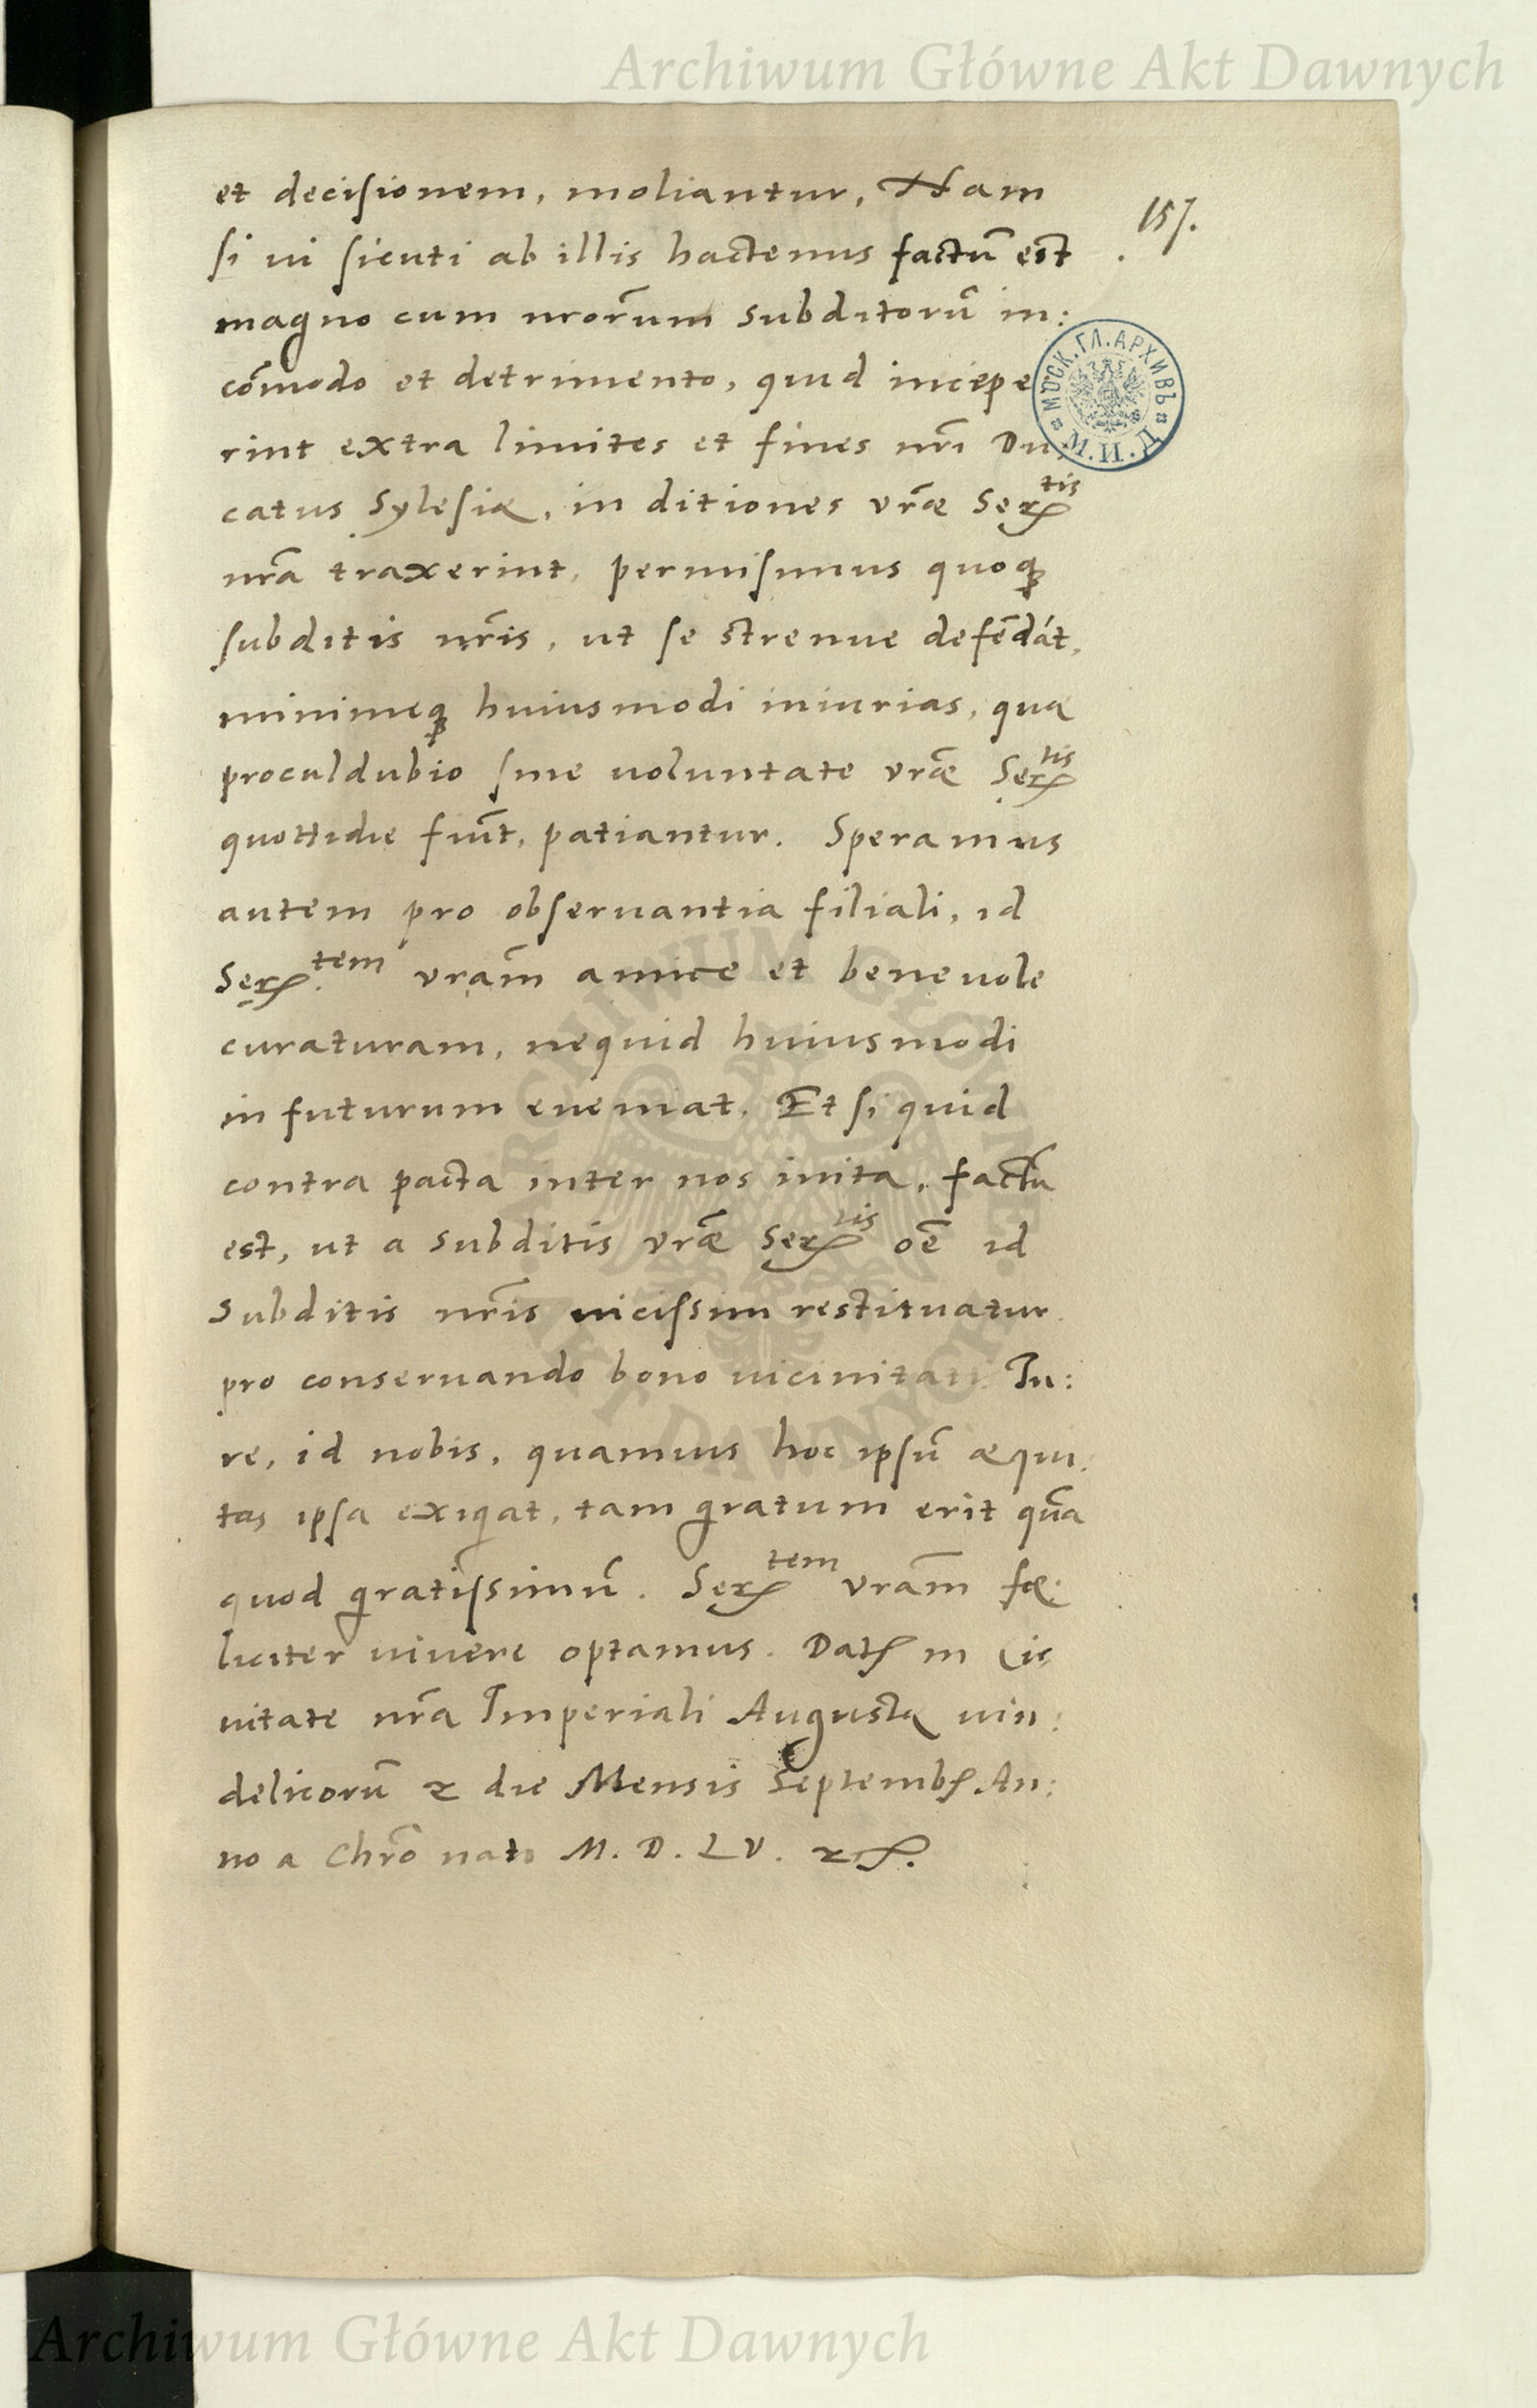 Archiwum Główne Akt Dawnych
157.
et decisionem, moliantur, Nam
si ui sicuti ab illis hactenus factū est
magno cum nrōrum subditorū in:
cōmodo et detrimento, quid incepe
rint extra limites et fines nrī Du
catus Sylesiæ, in ditiones vrǣ Serᵗⁱˢ
nrā traxerint, permisimus quoq
subditis nrīs, ut se strenue defēdāt,
minimeq huiusmodi iniurias, quæ
proculdubio sine uoluntate vrǣ Serᵗⁱˢ
quottidie fiūt, patiantur. Speramus
autem pro obseruantia filiali, id
Serᵗᵉᵐ vrām amice et beneuole
curaturam, nequid huiusmodi
in futurum eueniat. Et si quid
contra pacta inter nos inita, factū
est, ut a subditis vrǣ Serᵗⁱˢ oē id
subditis nrīs uicissim restituatur
pro conseruando bono uicinitatis Iu:
re, id nobis, quamuis hoc ipsū æqui:
tas ipsa exigat, tam gratum erit quā
quod gratissimū. Serᵗᵉᵐ vrām fœ:
liciter uiuere optamus. Dat in Ci
uitate nrā Imperiali Augusta uin:
delicorū 2 die Mensis Septemb An:
no a Chrō nato M. D. LV. rc.
МОСК. ГЛ. АРХИВЪ
М. И. Д.
ARCHIWUM GŁÓWNE
AKT DAWNYCH
Archiwum Główne Akt Dawnych